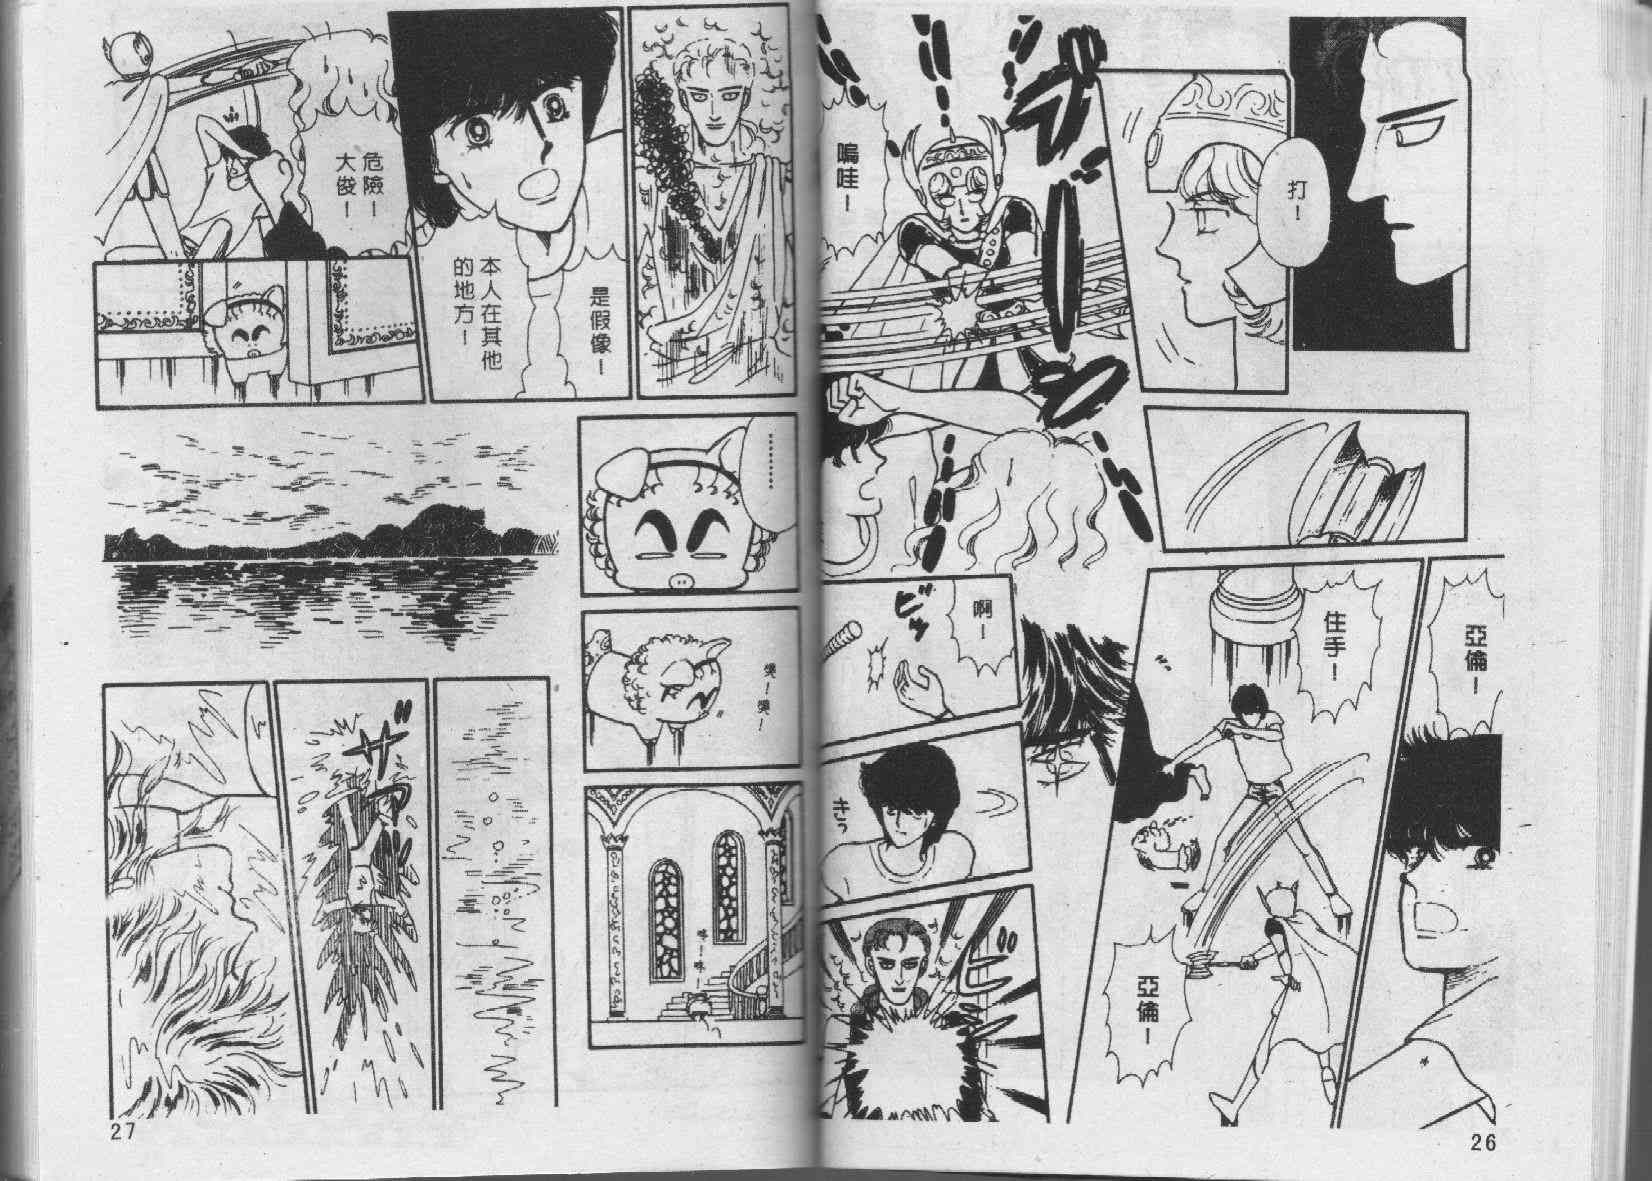 打！
嗚哇！
ブ
亞倫！
住手！
亞倫！
啊！
ビッ
きっ
是假像！
本人在其他
的地方！
危險！
大俊！
………
哭！哭！
咚！咚！
26
27